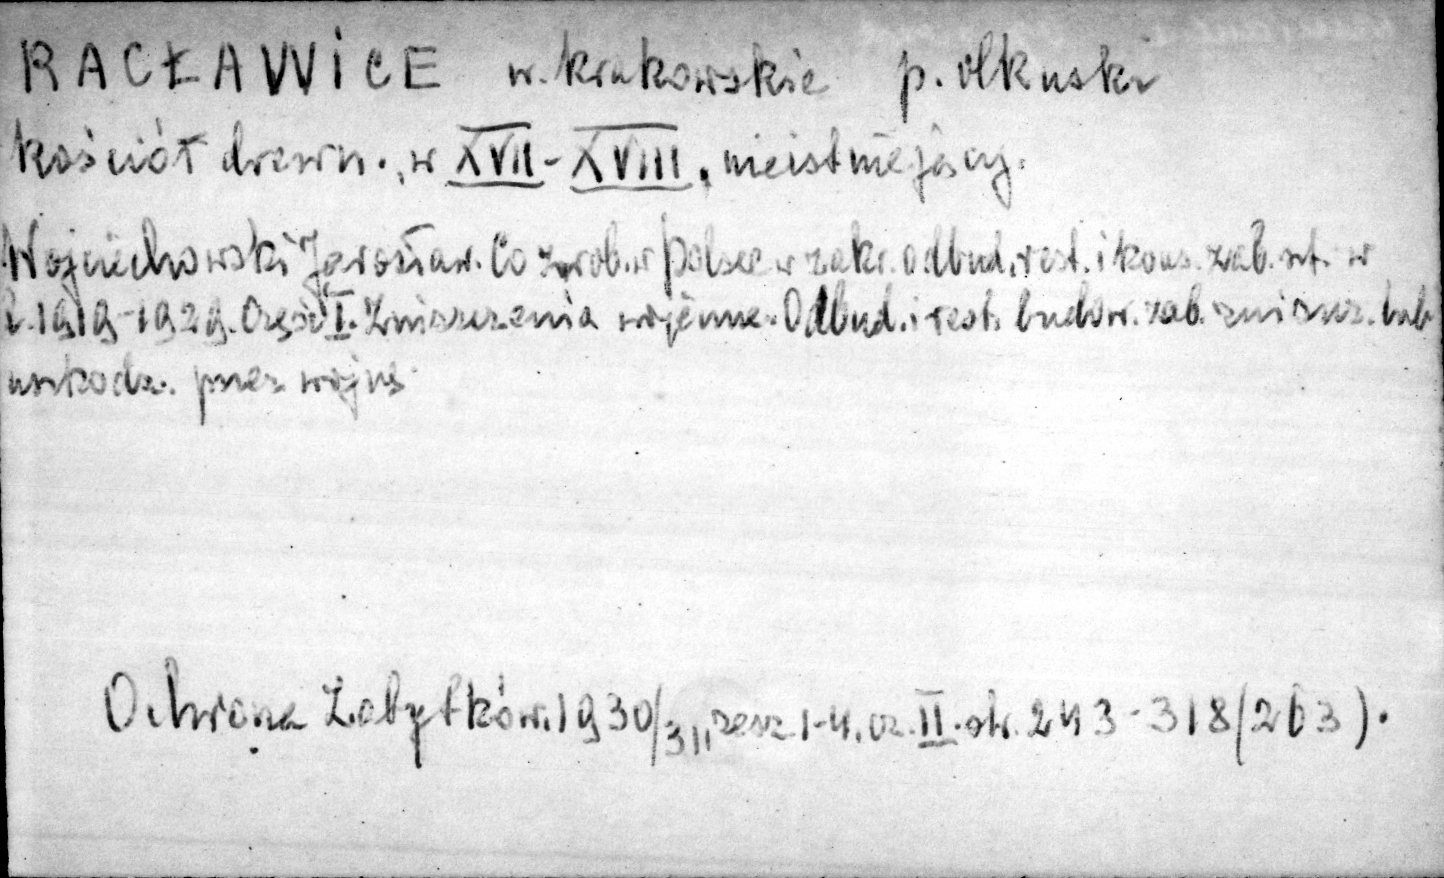 RACŁAWICE w. krakowskie p. olkuski
kościół drewn., w XVII-XVIII. nieistniejący.
Wojciechowski Jarosław. Co zrob. w Polsce w zakr. odbud. rest. i kons. zab. szt. w
l. 1919-1929. Część I. Zniszczenia wojenne. Odbud. i rest. budow. zab. zniszcz. lub
uszkodz. przez wojnę.
Ochrona Zabytków. 1930/31, zesz. 1-4. cz. II. str. 243-318 (263).